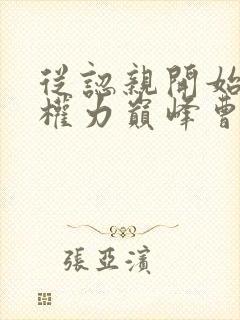 從認親開始
權力巔峰曹
張亞濱